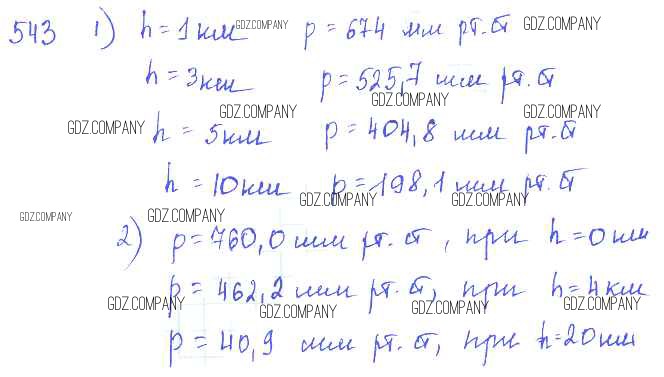 543 1) h = 1 км GDZ.COMPANY p = 674 мм рт. ст GDZ.COMPANY
h = 3 км p = 525,7 мм рт. ст
GDZ.COMPANY
GDZ.COMPANY GDZ.COMPANY
GDZ.COMPANY h = 5 км p = 404,8 мм рт. ст
h = 10 км p = 198,1 мм рт. ст
GDZ.COMPANY GDZ.COMPANY
GDZ.COMPANY GDZ.COMPANY
2) p = 760,0 мм рт. ст, при h = 0 км
p = 462,2 мм рт. ст, при h = 4 км
GDZ.COMPANY GDZ.COMPANY GDZ.COMPANY GDZ.COMPANY
p = 40,9 мм рт. ст, при h = 20 км